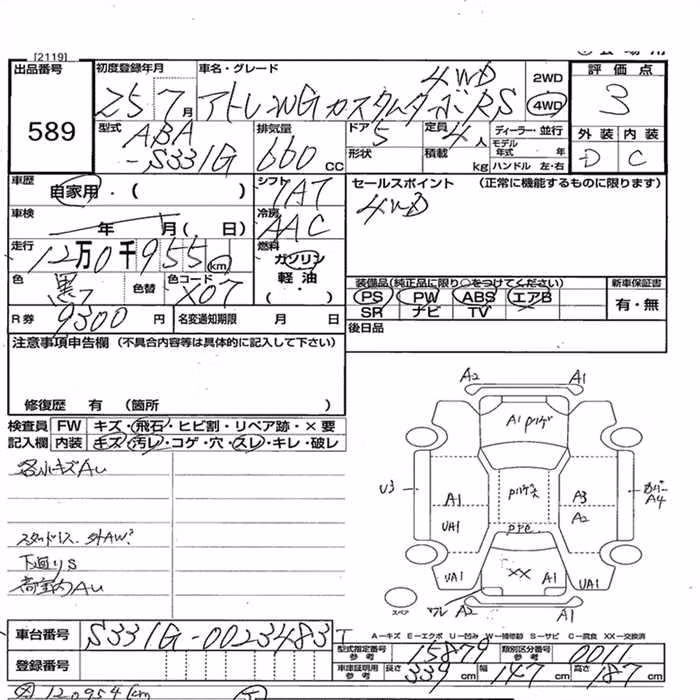 [2119]
出品番号
589
初度登録年月
25 7月
車名・グレード
4WD
カスタムターボRS
2WD
4WD
評価点
3
外装 内装
D C
型式
ABA
-S331G
排気量
660 cc
ドア 5
形状
定員 4人
積載 kg
ディーラー・並行
モデル年式 年
ハンドル 左・右
車歴
自家用・( )
シフト
IAT
セールスポイント (正常に機能するものに限ります)
4WD
車検
年 月(・日)
冷房
AAC
走行
12万0千955 km
燃料
ガソリン
軽油
・( )
色
黒
色替
色コード
X07
装備品(純正品に限り○をつけてください)
新車保証書
PS PW ABS エアB
SR ナビ TV
有・無
R券
9300円
名変通知期限 月 日
後日品
注意事項申告欄(不具合内容等は具体的に記入して下さい)
修復歴 有 (箇所 )
検査員 FW キズ・飛石・ヒビ割・リペア跡・×要
記入欄 内装 キズ・汚レ・コゲ・穴・スレ・キレ・破レ
各小キズAu
下廻りS
荷室内Au
A2 A1
A1
U3
A1
UA1
A3
A2
カバー
A4
UA1
XX
A1
UA1
スペア
ワレ A2
A1
A－キズ E－エクボ U－凹み W－補修跡 S－サビ C－腐食 XX－交換済
車台番号
S331G-0023483
型式指定番号 参考
15879
類別区分番号 参考
0011
登録番号
車庫証明用 参考
長さ 339 cm
幅 147 cm
高さ 187 cm
120954km